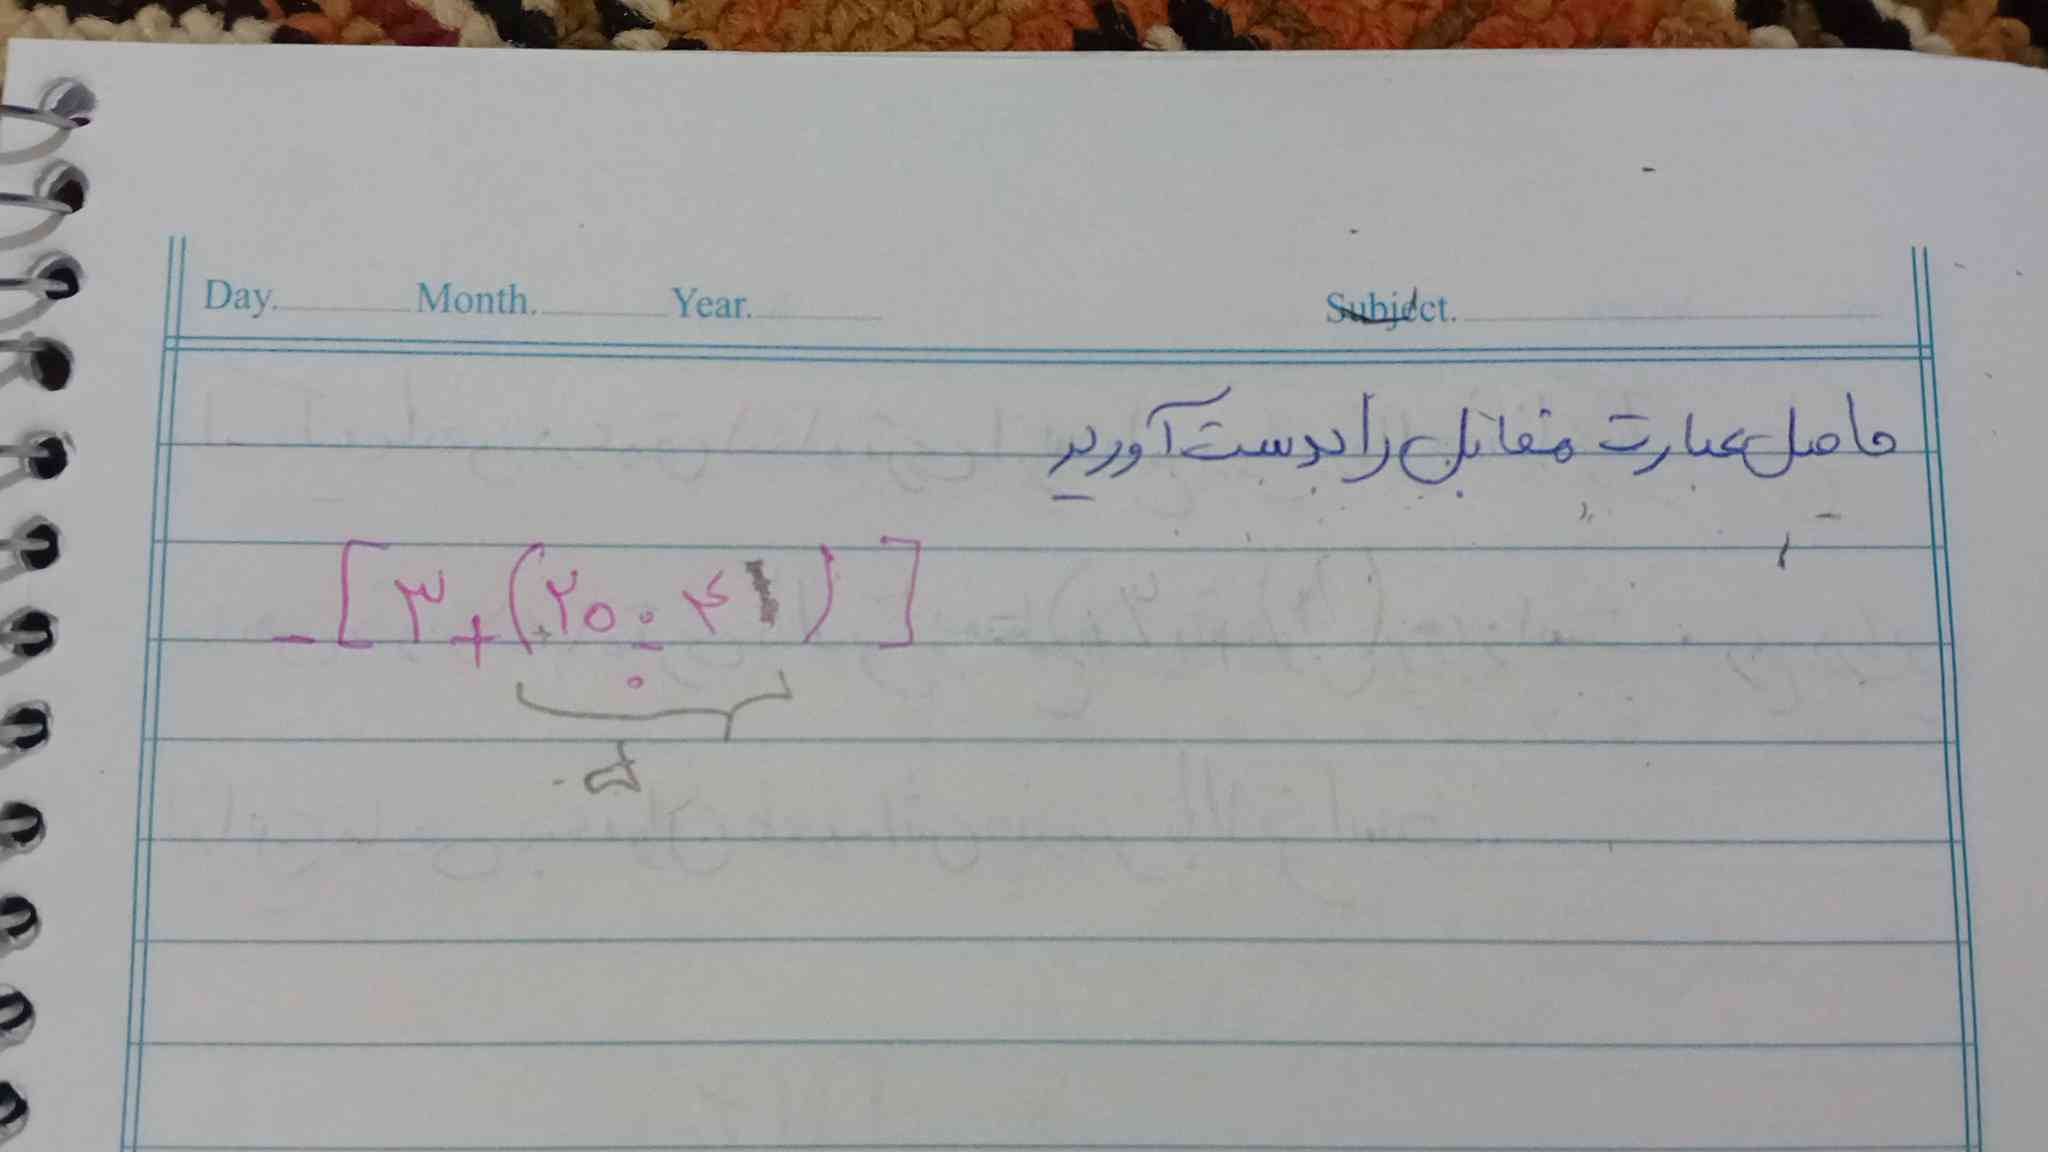 Day. Month. Year. Subject.
حاصل عبارت مقابل را بدست آورید
- [ ۳ + ( ۲۰ ÷ ۴ ) ]
۵